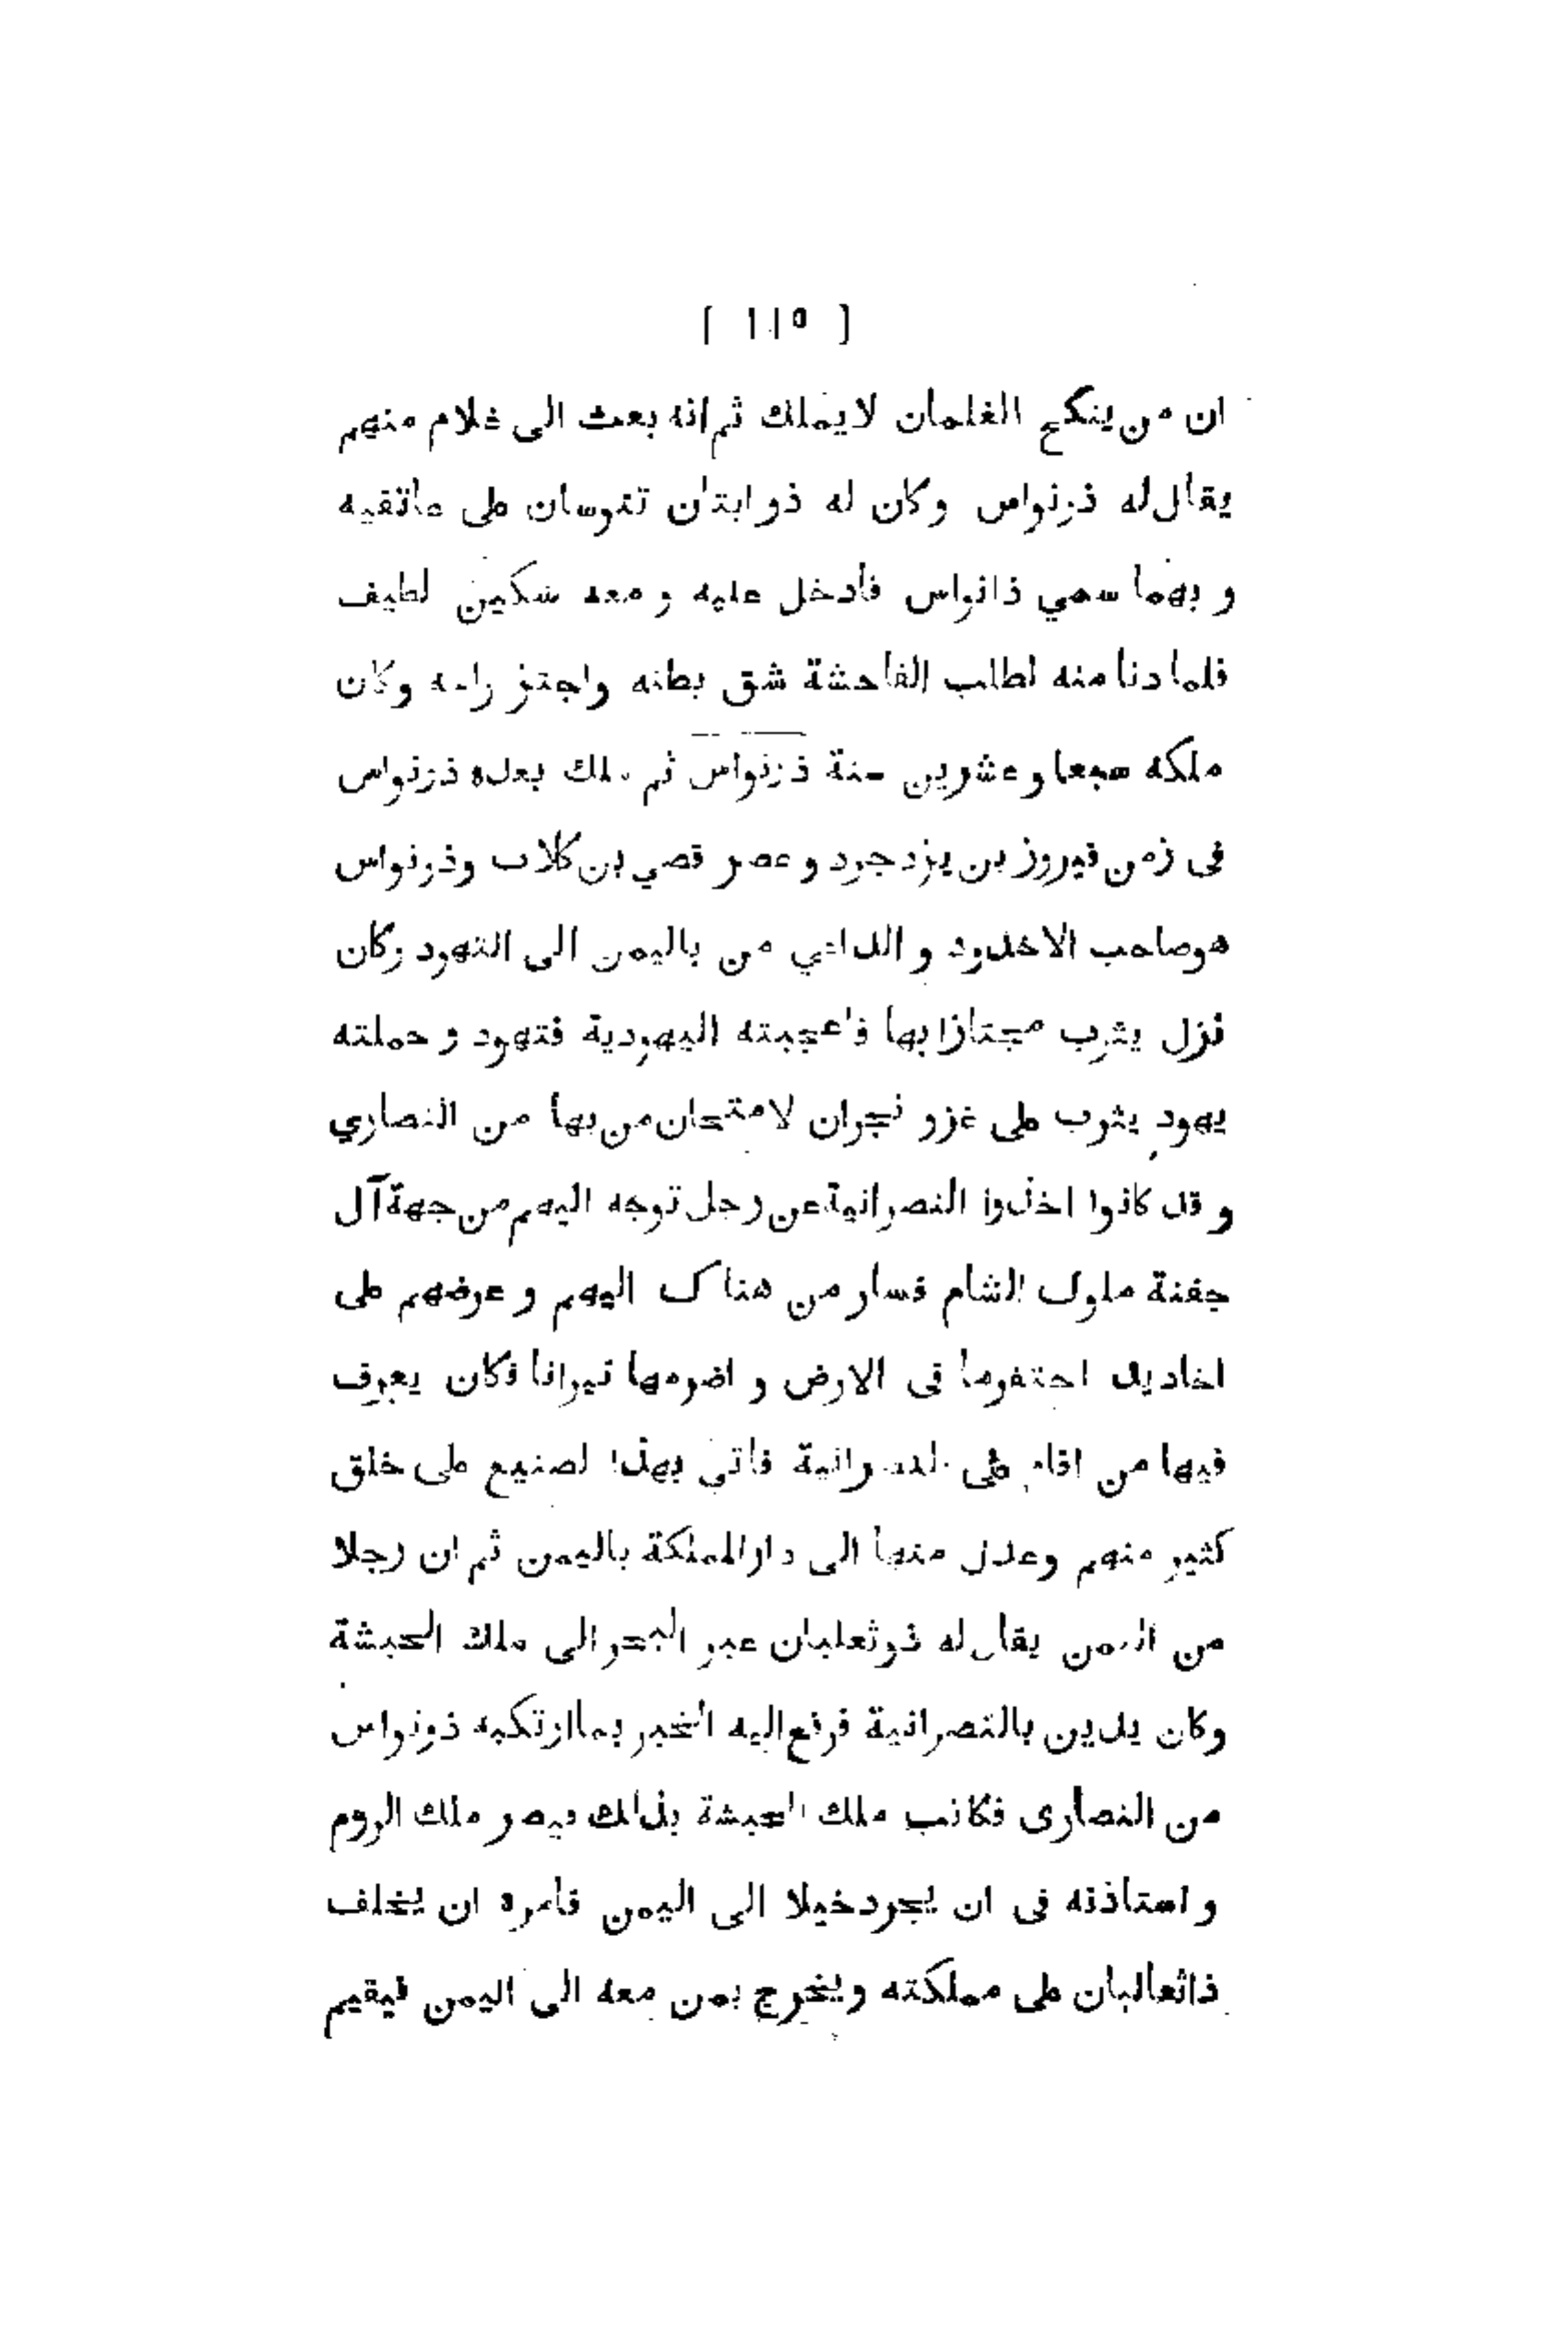 [ ١١٥ ]
ان من ينكح الغلمان لايملك ثم انه بعث الى غلام منهم
يقال له ذونواس وكان له ذوابتان تنوسان على عاتقيه
و بهما سمي ذانواس فأدخل عليه و معه سكين لطيف
فلما دنا منه لطلب الفاحشة شق بطنه واجتز راسه وكان
ملكه سبعا و عشرين سنة ذونواس ثم ملك بعده ذونواس
فى زمن فيروز بن يزدجرد و عصر قصي بن كلاب وذونواس
هو صاحب الاخدود و الداعي من باليمن الى التهود وكان
نزل يثرب مجتازا بها فاعجبته اليهودية فتهود و حملته
يهود يثرب على غزو نجران لامتحان من بها من النصاري
و قد كانوا اخذوا النصرانية عن رجل توجه اليهم من جهة آل
جفنة ملوك الشام فسار من هناك اليهم و عرضهم على
اخاديد احتفرها فى الارض و اضرمها نيرانا فكان يعرف
فيها من اقام على النصرانية فاتى بهذا الصنيع على خلق
كثير منهم وعدل منها الى دار المملكة باليمن ثم ان رجلا
من اليمن يقال له ذوثعلبان عبر البحر الى ملك الحبشة
وكان يدين بالنصرانية فرفع اليه الخبر بما ارتكبه ذونواس
من النصارى فكاتب ملك الحبشة بذالك قيصر ملك الروم
و استأذنه فى ان يجرد خيلا الى اليمن فأمره ان يخلف
ذاثعالبان على مملكته ويخرج بمن معه الى اليمن فيقيم